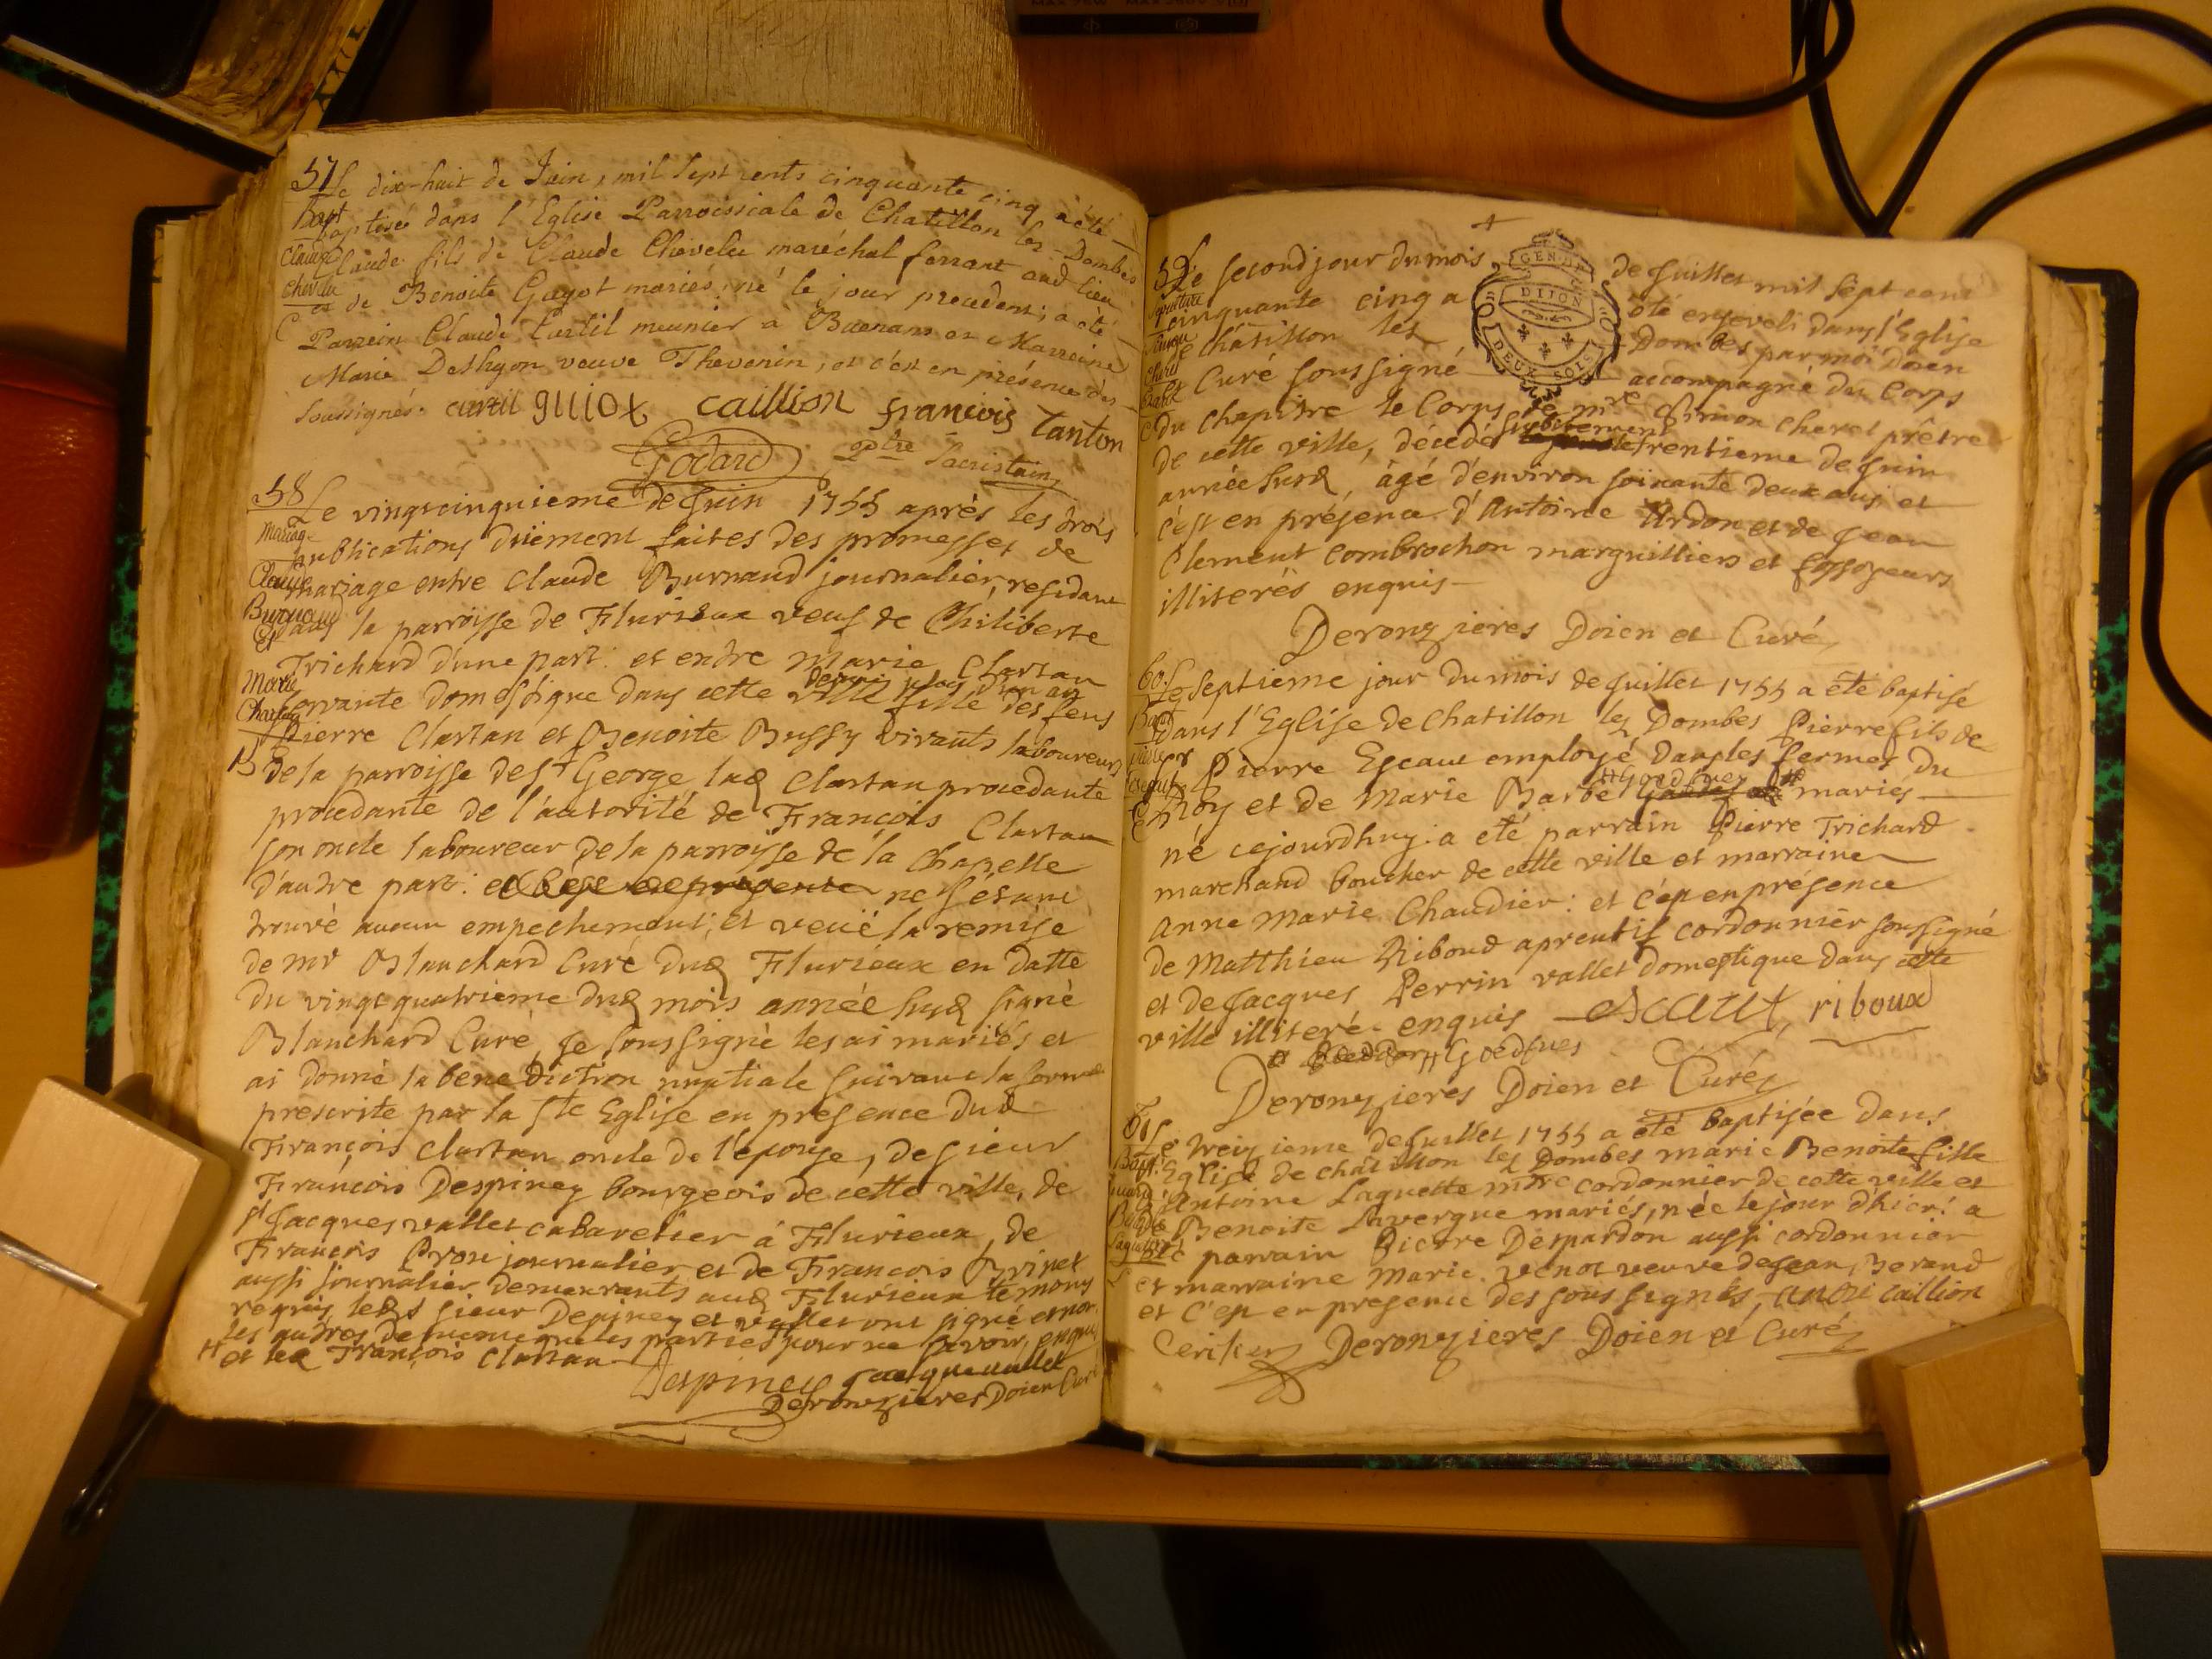 57 Le dix-huit de Juin, mil sept cents cinquante cinq a été
Bapt baptisé dans l'Eglise Parroissiale de Chatillon les Dombes
Claude Claude fils de Claude Chevelu maréchal ferrant aud lieu
Chevelu et de Benoite Guyot mariés, né le jour precedent; a été
C Parrein Claude Curtil meunier à Buenans et Marreine
Marie Deshyon veuve Thevenin, et c'est en présence des
soussignés. curtil guiot caillion françois Tanton
Godard ptre Sacristain
58 Le vingtcinquieme de Juin 1755 après les trois
mariag publications düement faites des promesses de
Claude mariage entre Claude Burnaud journalier, residant
Burnaud dans la parroisse de Flurieux veuf de Philiberte
et Trichard d'une part: et entre Marie Clartan
Marie servante domestique dans cette ville depuis plus d'un an fille des feus
Clartan Pierre Clartan et Benoite Bussy vivants laboureurs
B de la parroisse de St George lad Clartan procedante
procedante de l'autorité de François Clartan
son oncle laboureur de la parroisse de la Chapelle
d'autre part: ne s'etant
trouvé aucun empechement; et veüe la remise
de mr Blanchard Curé dud Flurieux en datte
du vingt quatrieme dud mois année susd signé
Blanchard Curé, je soussigné les ai mariés et
ai donné la bénediction nuptiale suivant la forme
prescrite par la Ste Eglise en presence dud
François Clartan oncle de l'epouse, de sieur
François Despiney bourgeois de cette ville, de
sr Jacques vallet cabaretier à Flurieux, de
François Pron journalier et de François Brinet
aussi journalier demeurants aud Flurieux témoins
requis lesds sieur Depiney et vallet ont signé et non
les autres de meme que les parties pour ne savoir, enquis
# et led François Clartan
Despiney Jacque vallet
Deronzieres Doien Curé
GEN DE DIJON DEUX SOLS
59 Le second jour du mois de Juillet mil sept cent
Sepulture cinquante cinq a été enseveli dans l'Eglise
de Châtillon les Dombes par moi Doien
Cheret et Curé soussigné accompagné du Corps
du Chapitre le Corps de mre Simon Cheret prêtre
de cette ville, décedé subitement le trentieme de Juin
année susd, âgé d'environ soixante deux ans, et
c'est en présence d'Antoine Ardon et de Jean
Clement Combrochon marguilliers et fossoyeurs
illiterés enquis
Deronzieres Doien et Curé
60. Le Septieme jour du mois de Juillet 1755 a été baptisé
Bapt dans l'Eglise de Chatillon les Dombes Pierre fils de
Pierre Pierre Escaut employé dans les fermes du
Escaut Roy et de Marie Barbe # Goedfues # mariés
né cejourdhuy: a été parrain Pierre Trichard
marchand boucher de cette ville et marraine
Anne Marie Chaudier: et c'est en présence
de Matthieu Riboud aprentif cordonnier soussigné
et de Jacques Perrin vallet domestique dans cette
ville illiteré enquis Escaut, riboud
# Goedfues
Deronzieres Doien et Curé
61 Le treizieme de Juillet 1755 a été baptisée dans
Bapt. l'Eglise de châtillon les Dombes marie Benoite fille
marie d'Antoine Laguette mtre cordonnier de cette ville et
Benoite de Benoite Lavergne mariés, née le jour d'hier: a
Laguette été parrain Pierre Despardon aussi cordonnier
et marraine Marie Venot veuve de Jean Berand
et c'est en presence des sous signés, caillion
Deronzieres Doien et Curé